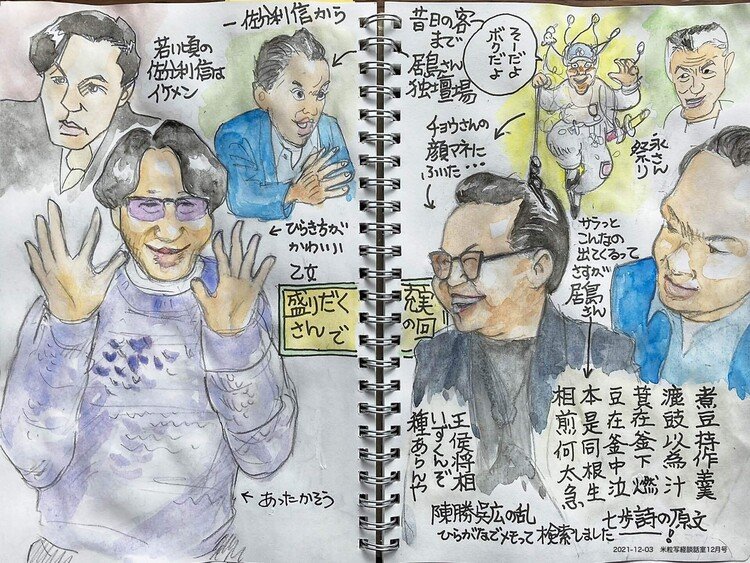 一佐分利信から
若い頃の
佐分利信は
イケメン
ひらき方が
かわいい
乙女
盛りだく
さんで
あったかそう
昔日の客
まで
居島さん
独壇場
そーだよ
ボクだよ
チョウさんの
顔マネに
ふいた…
永さん
祭り
サラっと
こんなの
出てくるって
さすが
居島さん
充実
の回
煮豆持作羹
漉豉以為汁
萁在釜下燃
豆在釜中泣
本是同根生
相煎何太急
七歩詩の原文!
王侯将相
いずくんぞ
種あらんや
陳勝呉広の乱
ひらがなでメモって検索しました
2021-12-03 米粒写経談話室12月号